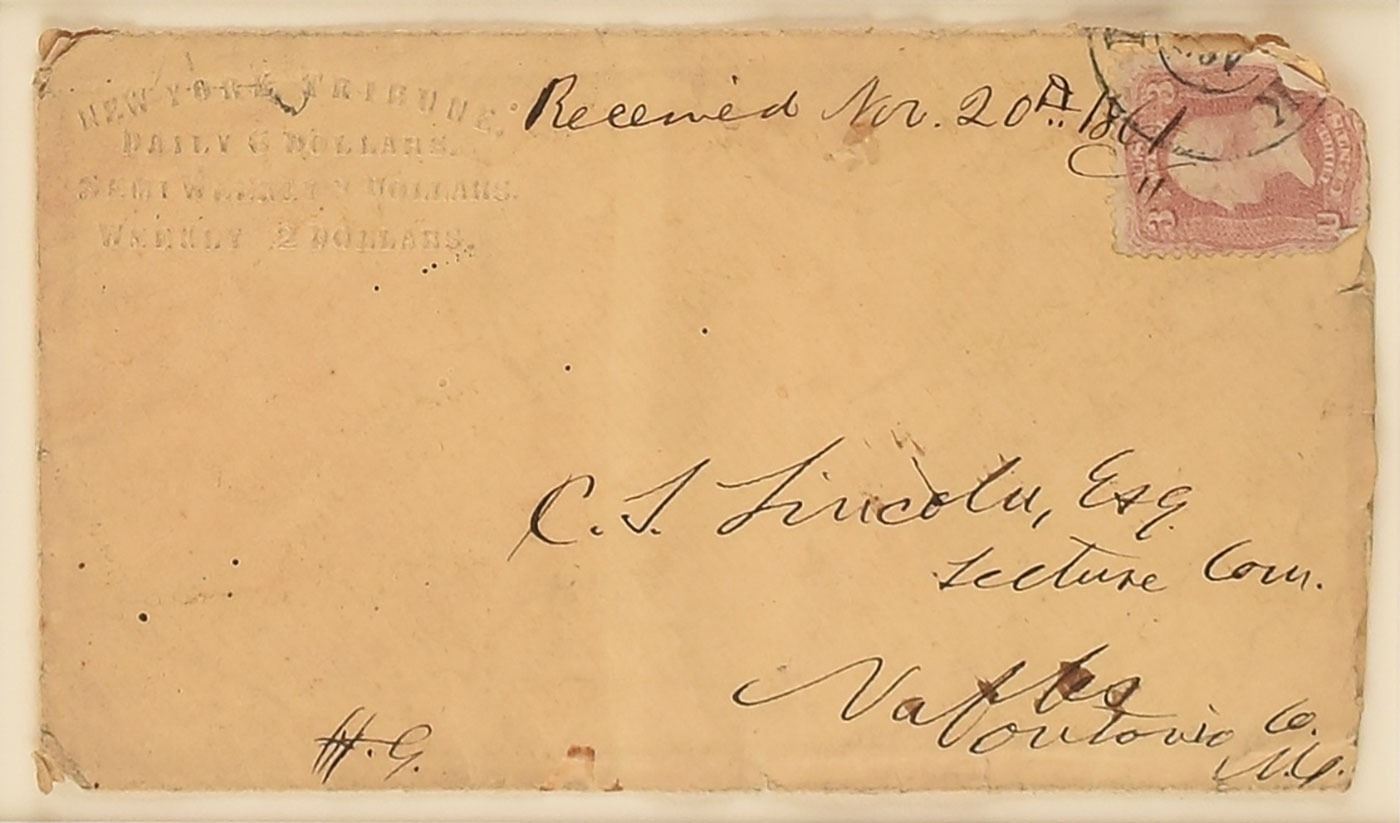 NEW YORK TRIBUNE.
DAILY 6 DOLLARS.
SEMI WEEKLY 3 DOLLARS.
WEEKLY 2 DOLLARS.
Received Nov. 20th 1861
3 3
U
C. S. Lincoln, Esq
Lecture Com.
Naples
Ontario Co.
N.Y.
H. G.